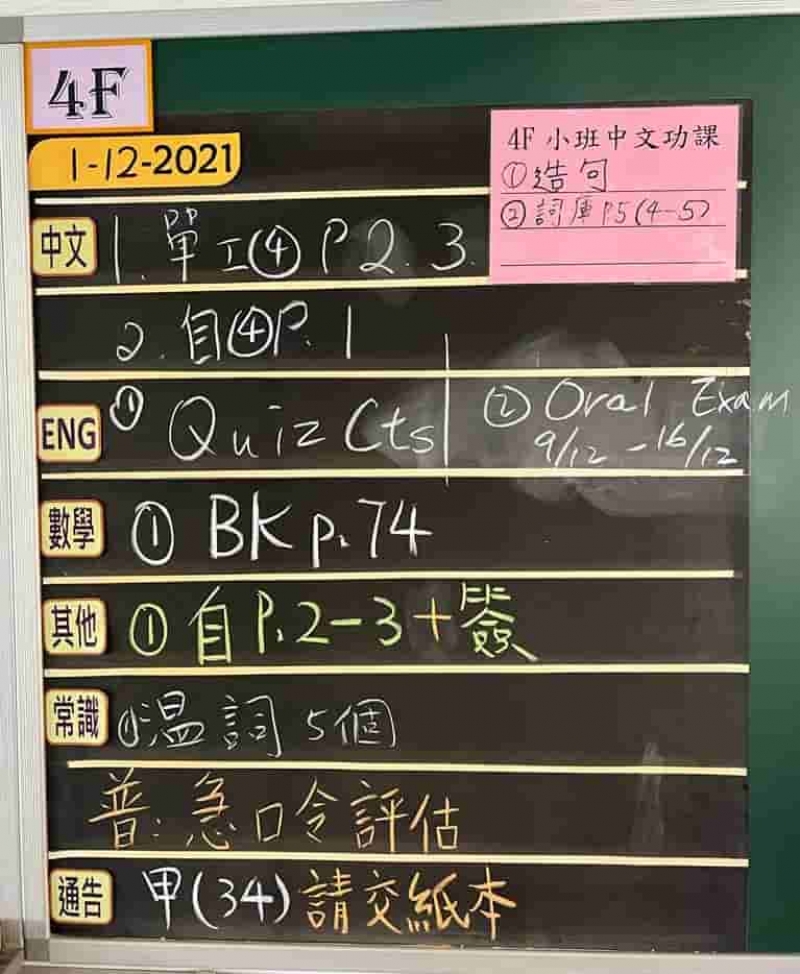 4F
1-12-2021
4F 小班中文功課
①造句
②詞庫 P5(4-5)
中文 1. 單工④ P 2. 3.
2. 自④P. 1
ENG ① Quiz Cts ② Oral Exam
9/12 - 16/12
數學 ① BK p.74
其他 ① 自 P.2-3+簽
常識 ①温詞 5個
普: 急口令評估
通告 甲(34)請交紙本